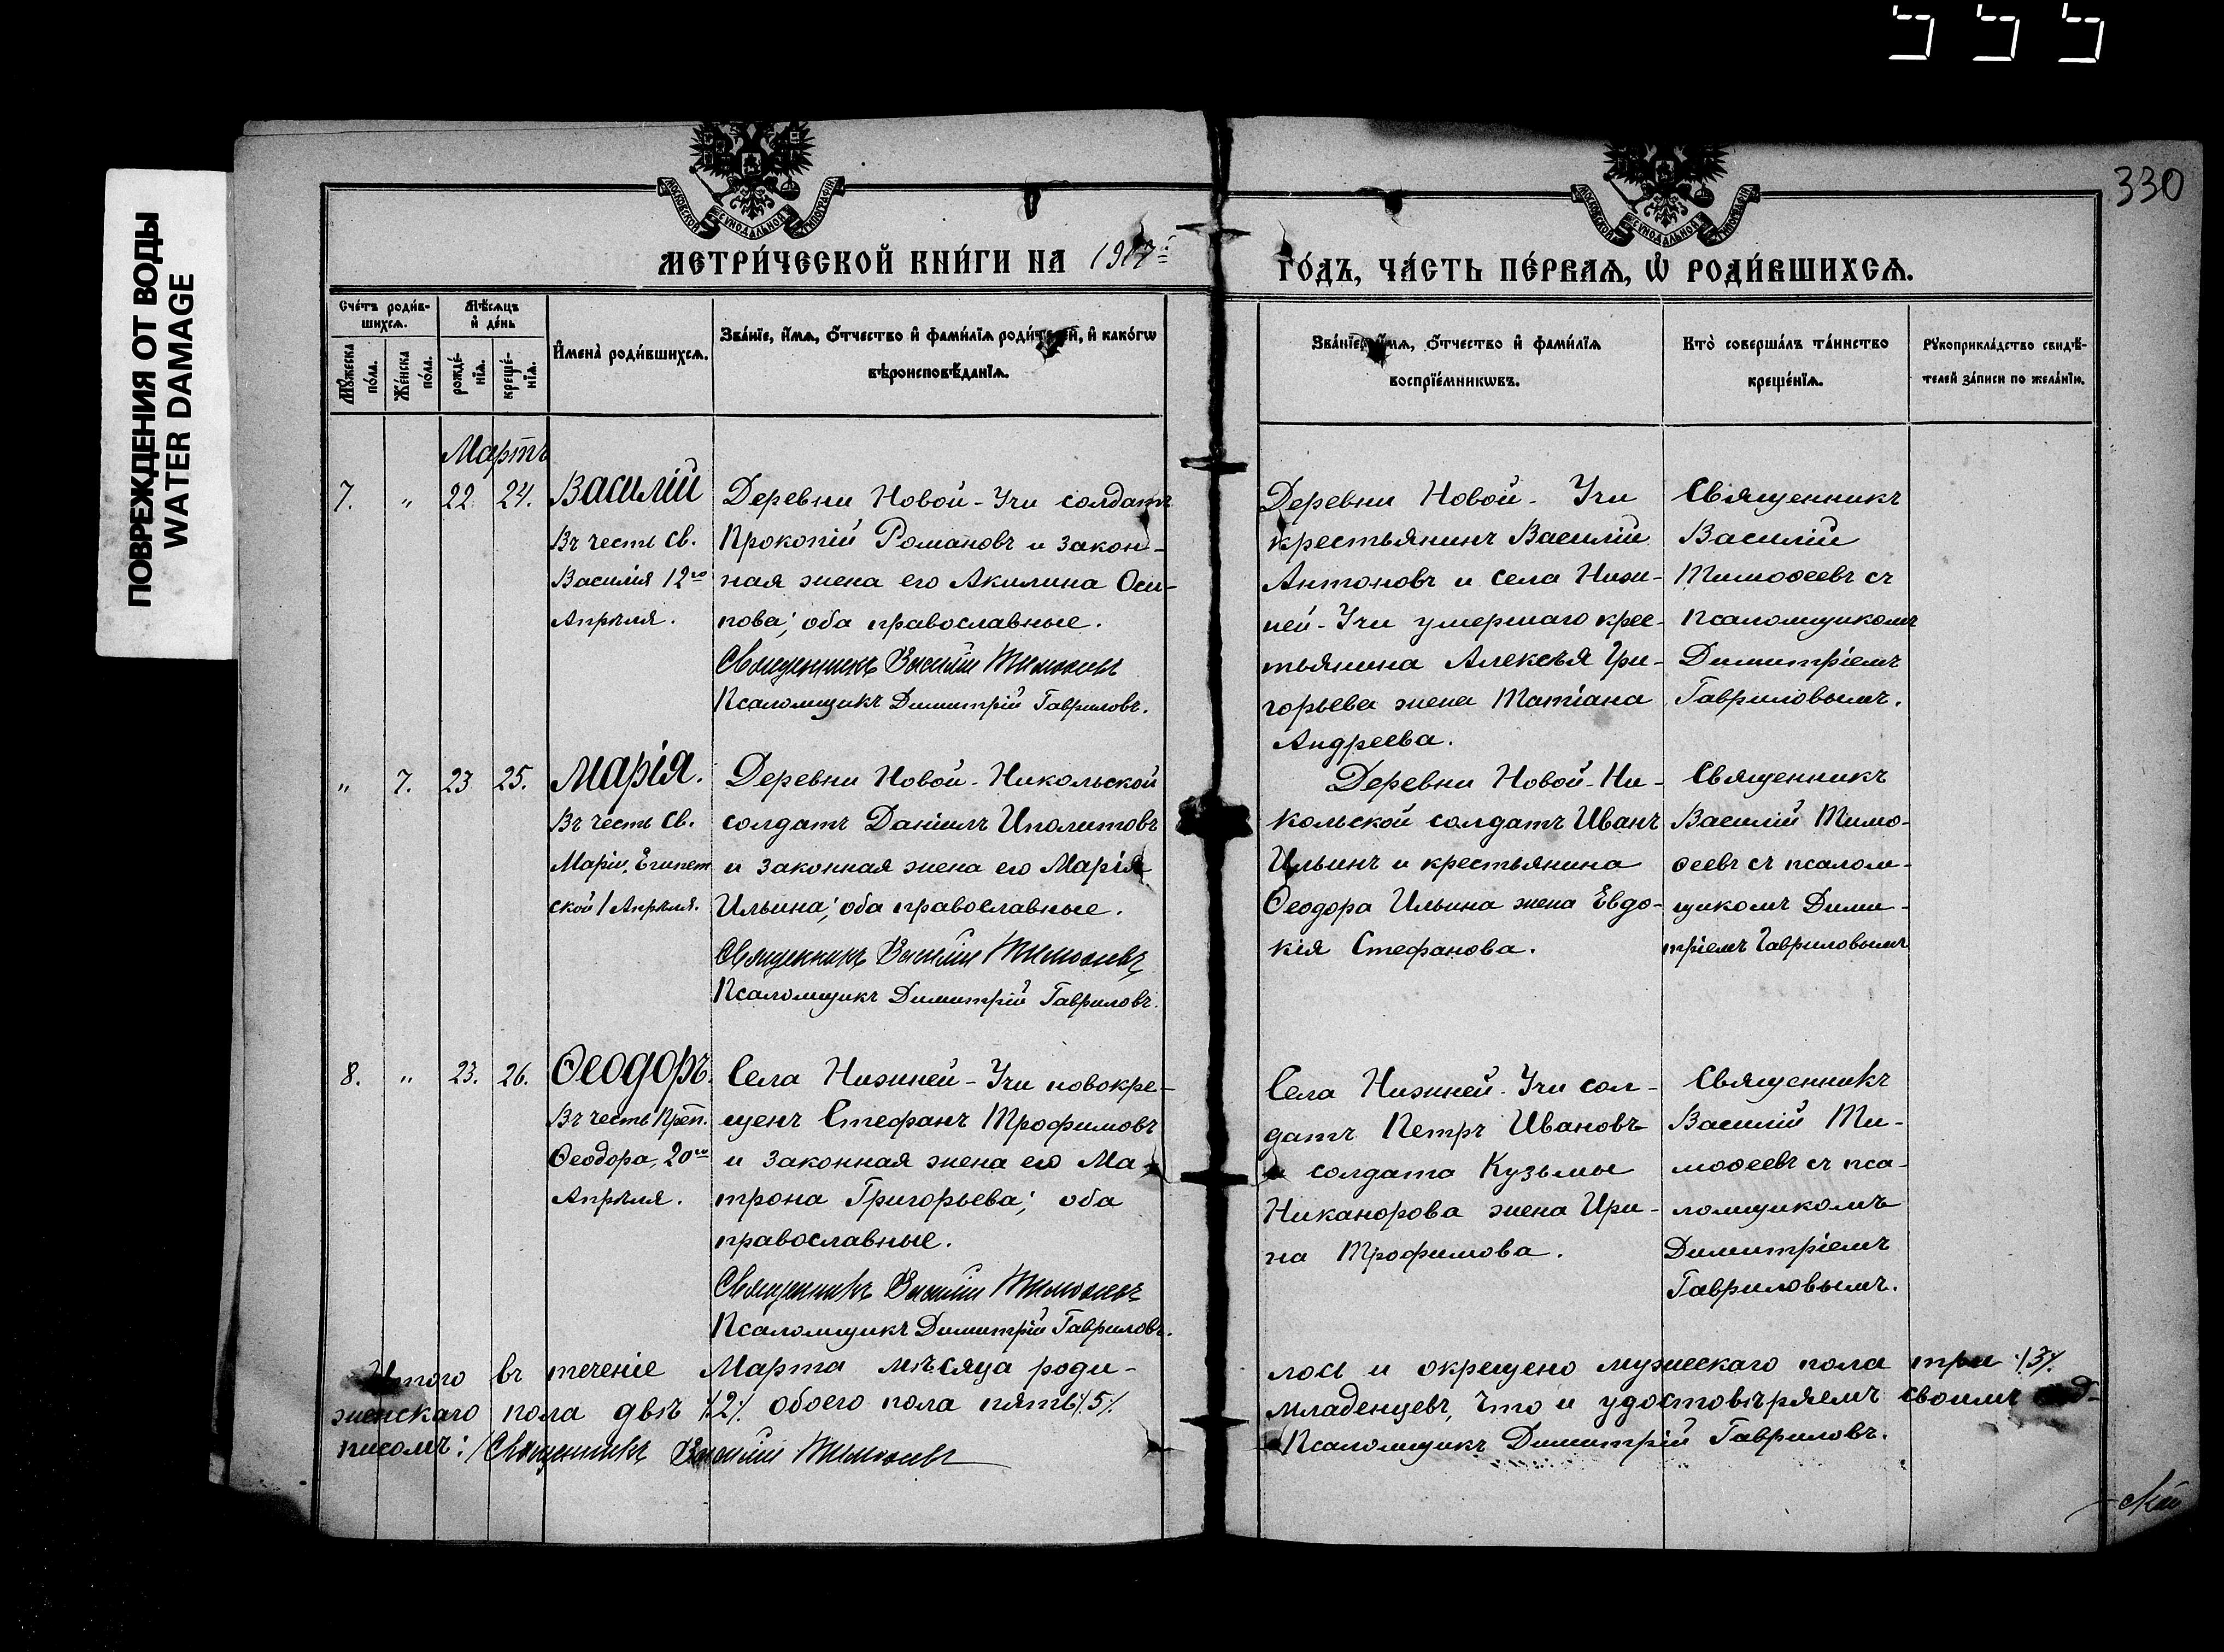 ПОВРЕЖДЕНИЯ ОТ ВОДЫ
WATER DAMAGE
330
МОСКОВСКОЙ СѴНОДАЛЬНОЙ ТИПОГРАФІИ
МОСКОВСКОЙ СѴНОДАЛЬНОЙ ТИПОГРАФІИ
МЕТРИ́ЧЕСКОЙ КНИ́ГИ НА
ГО́ДЪ, ЧА́СТЬ ПЕ́РВАѦ, Ѡ҆ РОДИ́ВШИХСѦ.
Сче́тъ роди́в-
шихсѧ.
Мꙋ́жеска
по́ла.
Же́нска
по́ла.
Мѣ́сѧцъ
и҆ де́нь
рожде́-
нїѧ.
креще́-
нїѧ.
И҆мена̀ роди́вшихсѧ.
Зва́нїе, и҆́мѧ, ѻ҆́тчество и҆ фами́лїѧ роди́телей, и҆ како́гѡ
вѣроисповѣ́данїѧ.
Зва́нїе, и҆́мѧ, ѻ҆́тчество и҆ фами́лїѧ
воспрїе́мникѡвъ.
Кто̀ соверша́лъ та́инство
креще́нїѧ.
Рꙋкоприкла́дство свидѣ́-
телей за́писи по жела́нїю.
Мартъ
7. " 22. 24.
Василій
Въ честь Св.
Василія 12го
Апрѣля.
Деревни Новой-Учи солдатъ
Прокопій Романовъ и закон-
ная жена его Акилина Оси-
пова; оба православные.
Священникъ Василій Тимофеевъ
Псаломщикъ Димитрій Гавриловъ.
Деревни Новой-Учи
крестьянинъ Василій
Антоновъ и села Ниж-
ней-Учи умершаго крес-
тьянина Алексѣя Гри-
горьева жена Татіана
Андреева.
Священникъ
Василій
Тимоѳеевъ съ
псаломщикомъ
Димитріемъ
Гавриловымъ.
" 7. 23 25.
Марія.
Въ честь Св.
Маріи, Египет
ской 1 Апрѣля.
Деревни Новой-Никольской
солдатъ Даніилъ Иполитовъ
и законная жена его Марія
Ильина; оба православные.
Священникъ Василій Тимофеевъ
Псаломщикъ Димитрій Гавриловъ.
Деревни Новой-Ни-
кольской солдатъ Иванъ
Ильинъ и крестьянина
Ѳеодора Ильина жена Евдо-
кія Стефанова.
Священникъ
Василій Тимо-
ѳеевъ съ псалом-
щикомъ Дими-
тріемъ Гавриловымъ
8. " 23. 26.
Ѳеодоръ.
Въ честь Преп.
Ѳеодора, 20го
Апрѣля.
Села Нижней-Учи новокре-
щенъ Стефанъ Трофимовъ
и законная жена его Ма-
трона Григорьева; оба
православные.
Священникъ Василій Тимофеевъ
Псаломщикъ Димитрій Гавриловъ.
Села Нижней-Учи сол-
датъ Петръ Ивановъ
и солдата Кузьмы
Никанорова жена Ири-
на Трофимова.
Священникъ
Василій Ти-
моѳеевъ съ пса-
ломщикомъ
Димитріемъ
Гавриловымъ.
Итого въ теченіе Марта мѣсяца роди-
лось и окрещено мужескаго пола три /3/.
женскаго пола двѣ /2/. обоего пола пять /5/.
младенцевъ, что и удостовѣряемъ своимъ под-
писомъ: Священникъ Василій Тимофеевъ
Псаломщикъ Димитрій Гавриловъ.